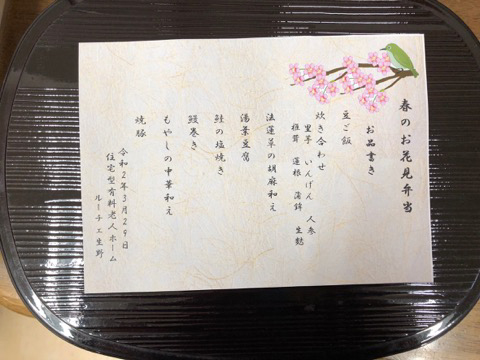 春のお花見弁当
お品書き
豆ご飯
炊き合わせ
里芋 いんげん 人参
椎茸 蓮根 蒲鉾 生麩
法蓮草の胡麻和え
湯葉豆腐
鮭の塩焼き
鰻巻き
もやしの中華和え
焼豚
令和2年3月29日
住宅型有料老人ホーム
ルーチェ生野